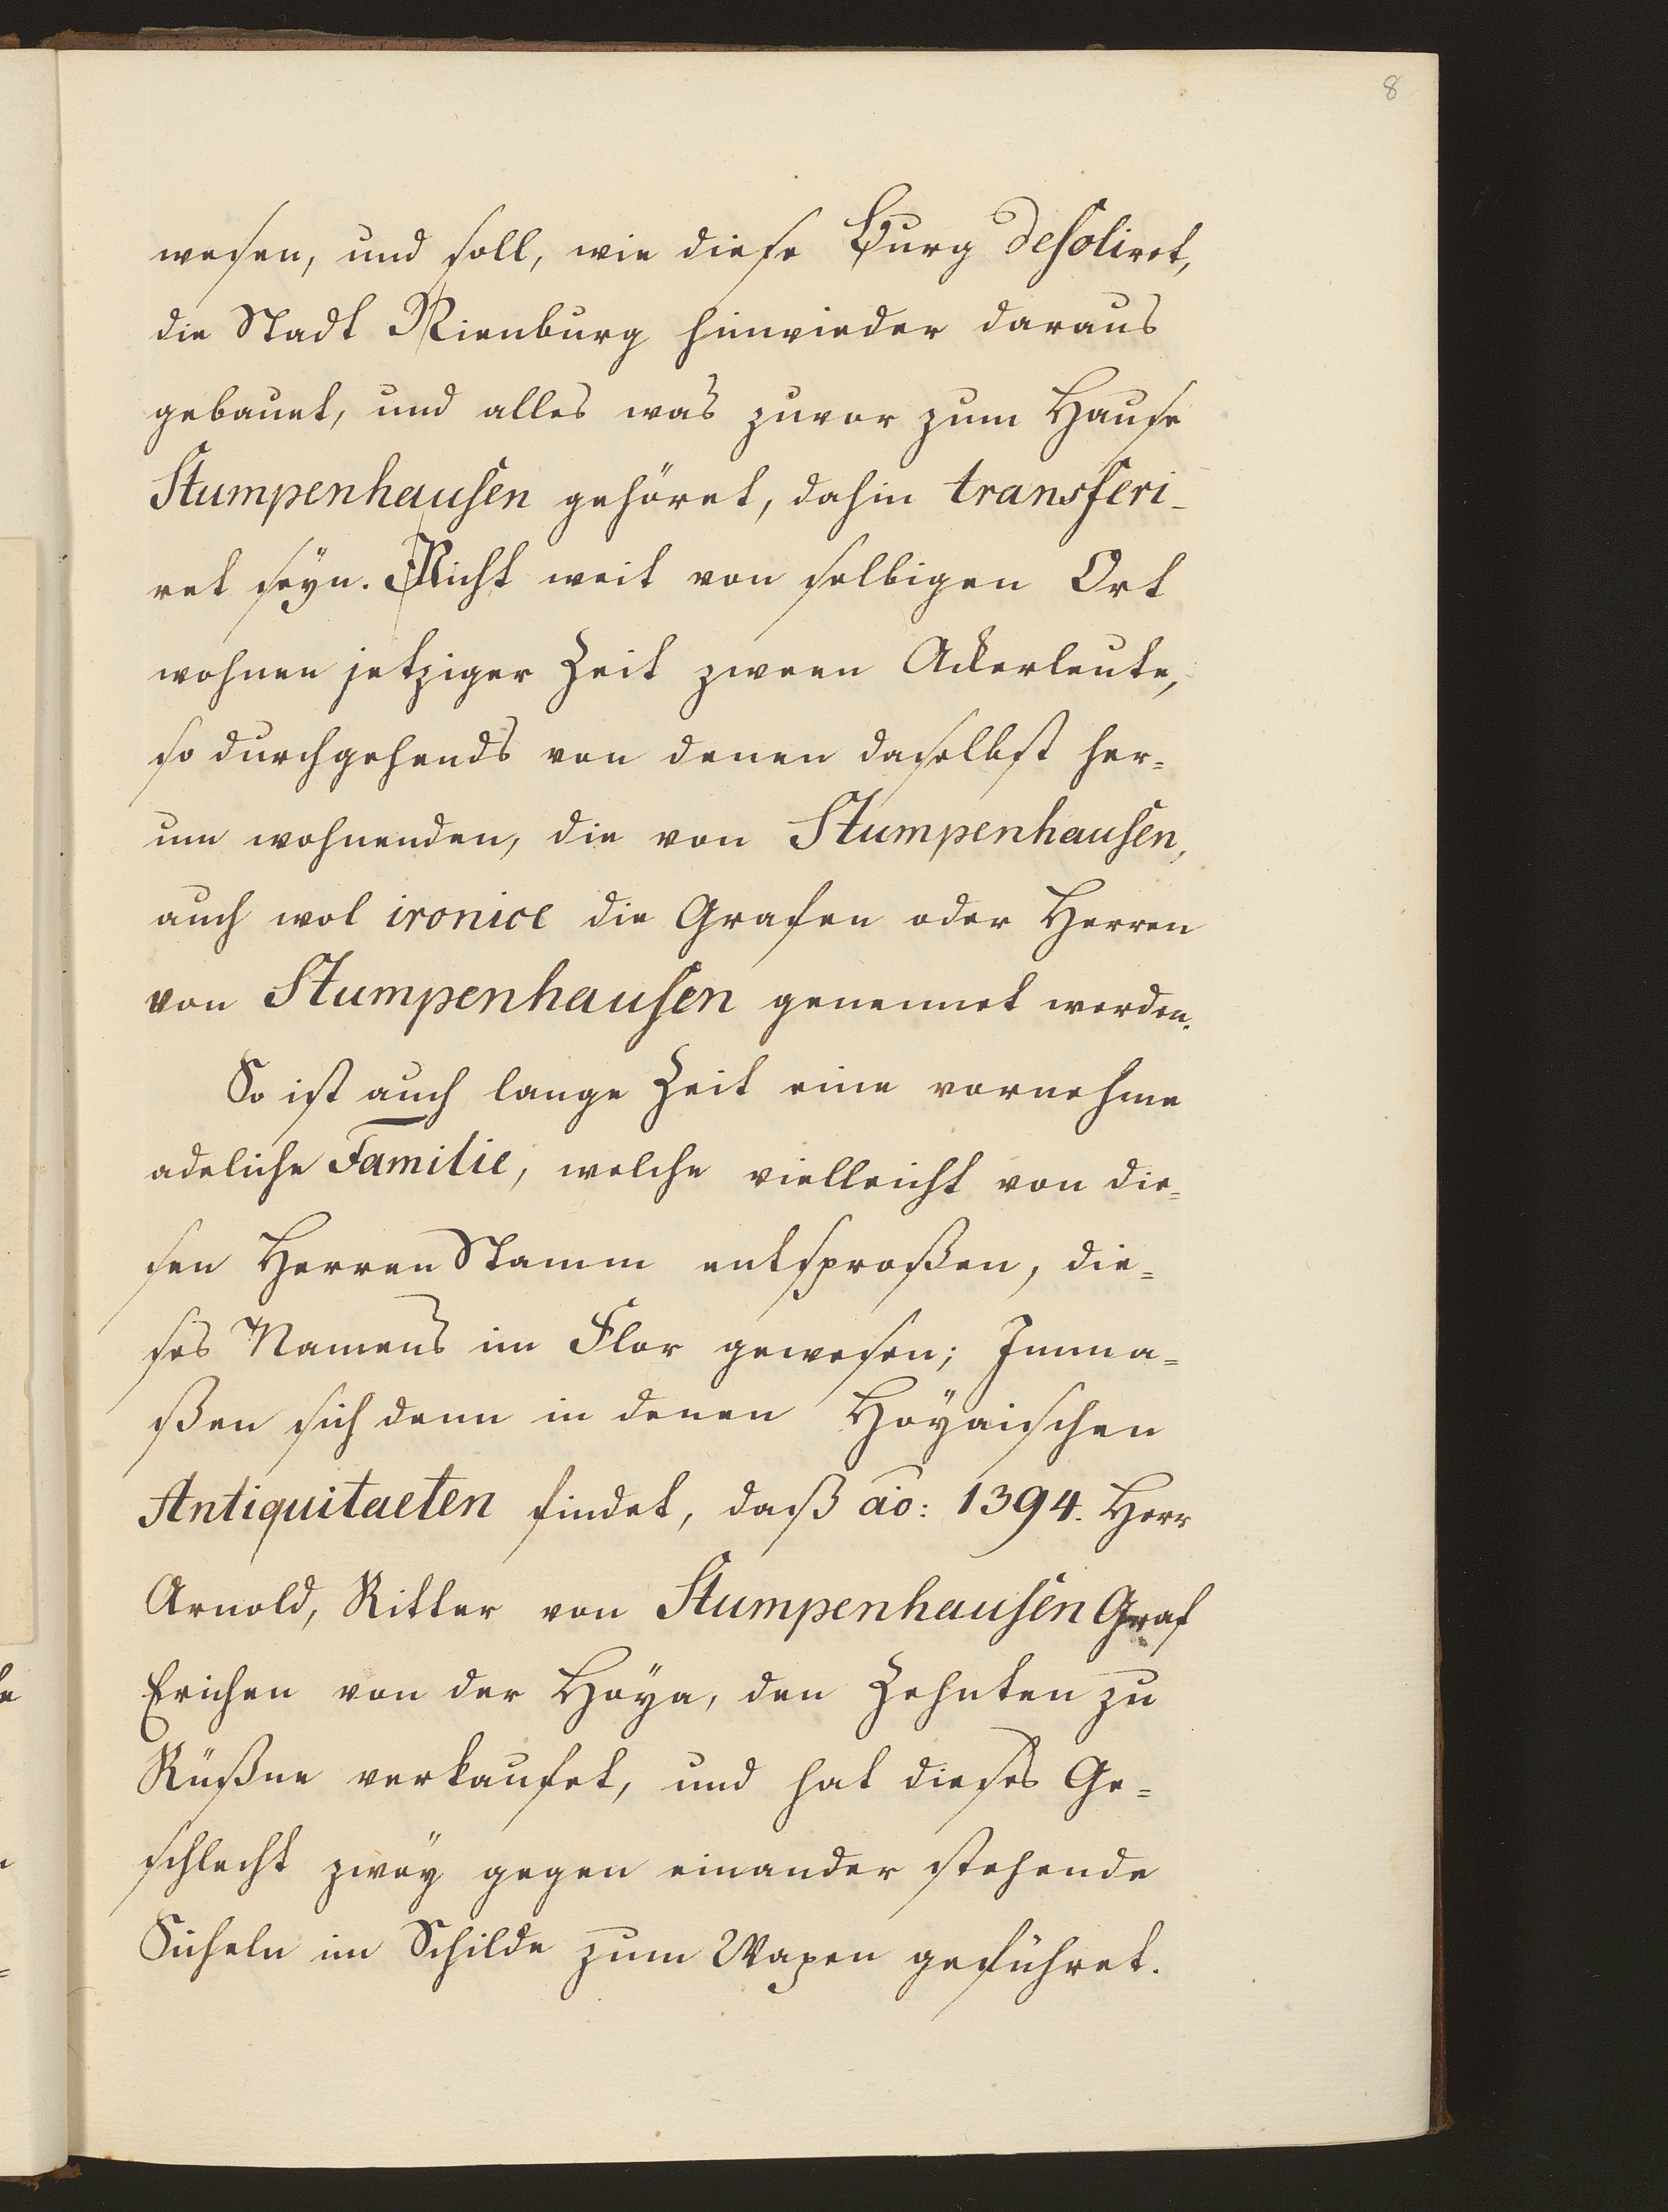 8
wesen, und soll, wie diese Burg desoliret,
die Stadt Nienburg hinwieder daraus
gebauet, und alles was zuvor zum Hause
Stumpenhausen gehöret, dahin transferi-
ret seyn. Nicht weit von selbigen Ort
wohnen jetziger Zeit zween Ackerleute,
so durchgehends von denen daselbst her=
um wohnenden, die von Stumpenhausen,
auch wol ironice die Grafen oder Herren
von Stumpenhausen genennet werden.
So ist auch lange Zeit eine vornehme
adeliche Familie, welche vielleicht von die=
sen Herren Stamm entsproßen, die=
ses Namens im Flor gewesen; Imma=
ßen sich denn in denen Hoÿaischen
Antiquitaeten findet, daß ao: 1394. Herr
Arnold, Ritter von Stumpenhausen Graf
Erichen von der Hoÿa, den Zehnten zu
Rüßne verkaufet, und hat dieses Ge=
schlecht zweÿ gegen einander stehende
Sicheln im Schilde zum Wapen geführet.